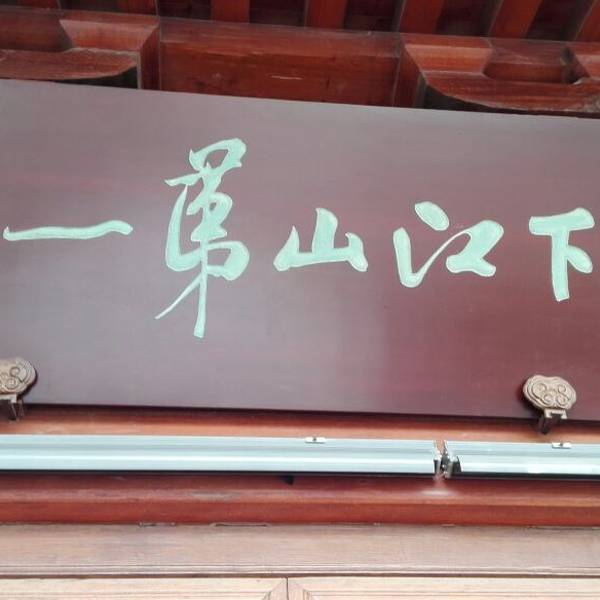 下江山第一